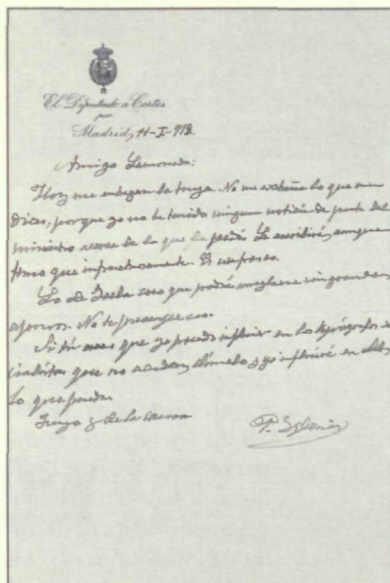 El Diputado a Cortes
por
Madrid, 11-I-918.
Amigo Lamoneda:
Hoy me entregan la tuya. No me extraña lo que me
dices, porque yo no he tenido ninguna noticia de parte del
ministro acerca de lo que le pedí. Le escribiré, aunque
temo que infructuosamente. Es un fresco.
Lo de creo que podrá arreglarse sin grandes
apuros. No te preocupes.
Si tú crees que yo puedo influir en los tipógrafos
que no acuden, dímelo y yo influiré en ellos
lo que pueda.
Tuyo y de la causa
P. Iglesias